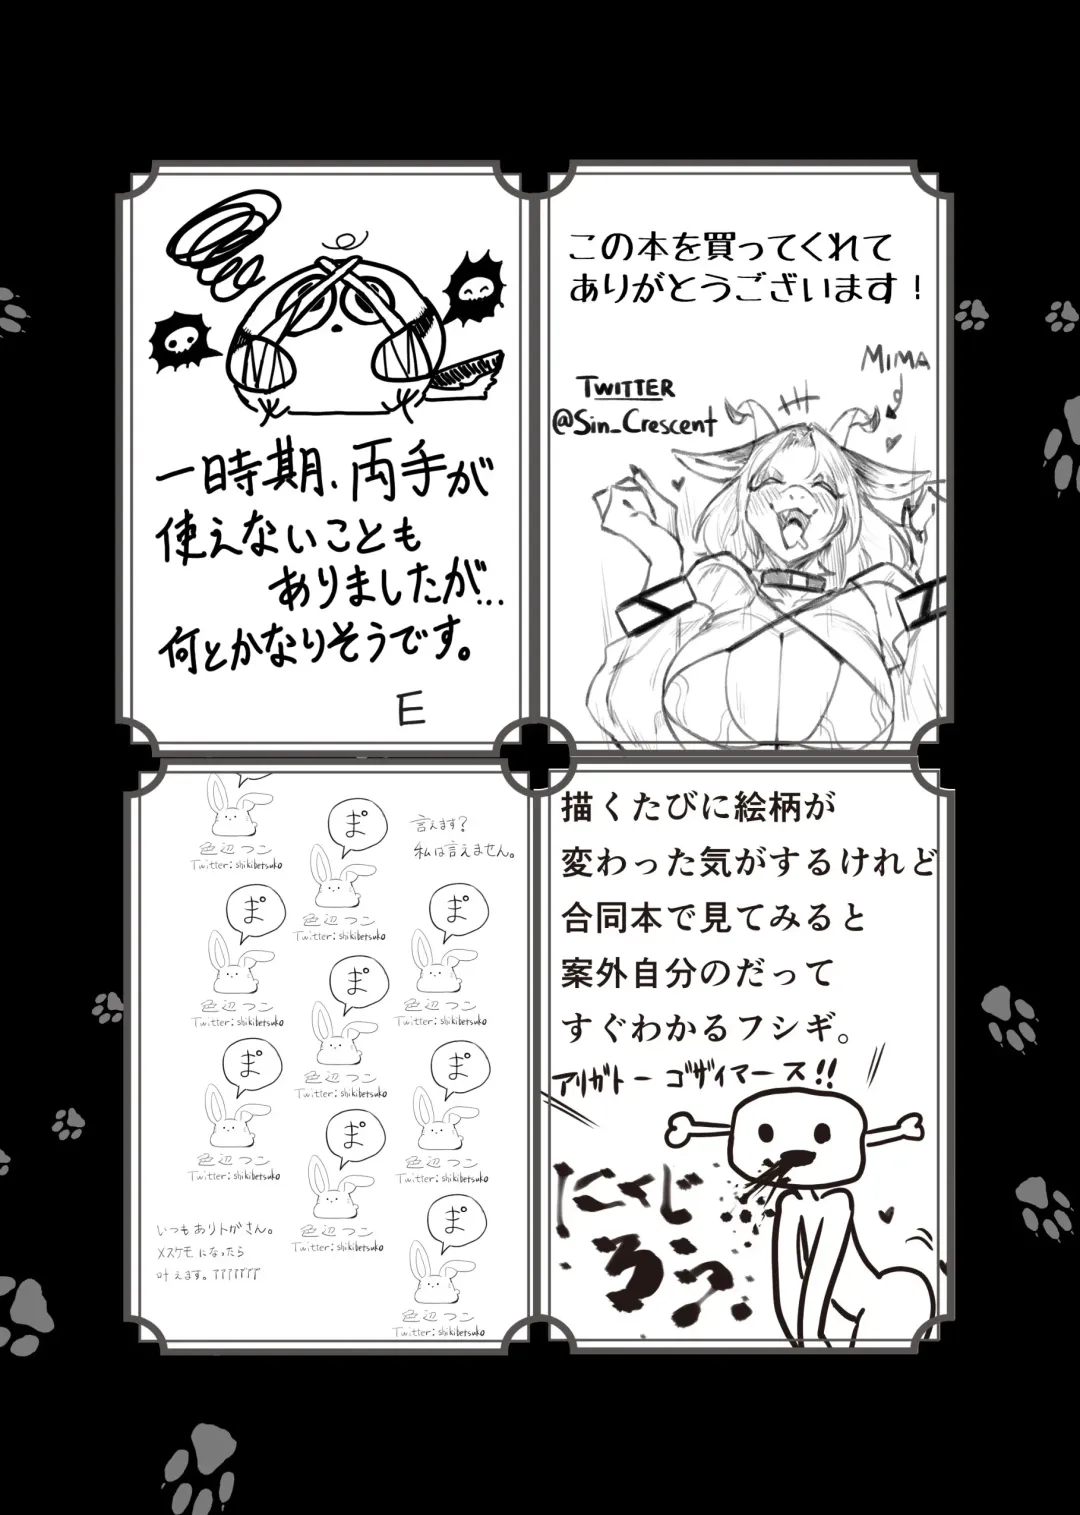 一時期、両手が
使えないことも
ありましたが...
何とかなりそうです。
E
この本を買ってくれて
ありがとうございます！
MIMA
TWITTER
@Sin_Crescent
色辺ツコ
Twitter: shikibetsuko
ぽ
色辺ツコ
Twitter: shikibetsuko
言えます?
私は言えません。
ぽ
色辺ツコ
Twitter: shikibetsuko
ぽ
色辺ツコ
Twitter: shikibetsuko
ぽ
色辺ツコ
Twitter: shikibetsuko
ぽ
色辺ツコ
Twitter: shikibetsuko
ぽ
色辺ツコ
Twitter: shikibetsuko
ぽ
色辺ツコ
Twitter: shikibetsuko
ぽ
色辺ツコ
Twitter: shikibetsuko
いつもありトがさん。
メスケモになったら
叶えます。???????
描くたびに絵柄が
変わった気がするけれど
合同本で見てみると
案外自分のだって
すぐわかるフシギ。
アリガトーゴザイマース!!